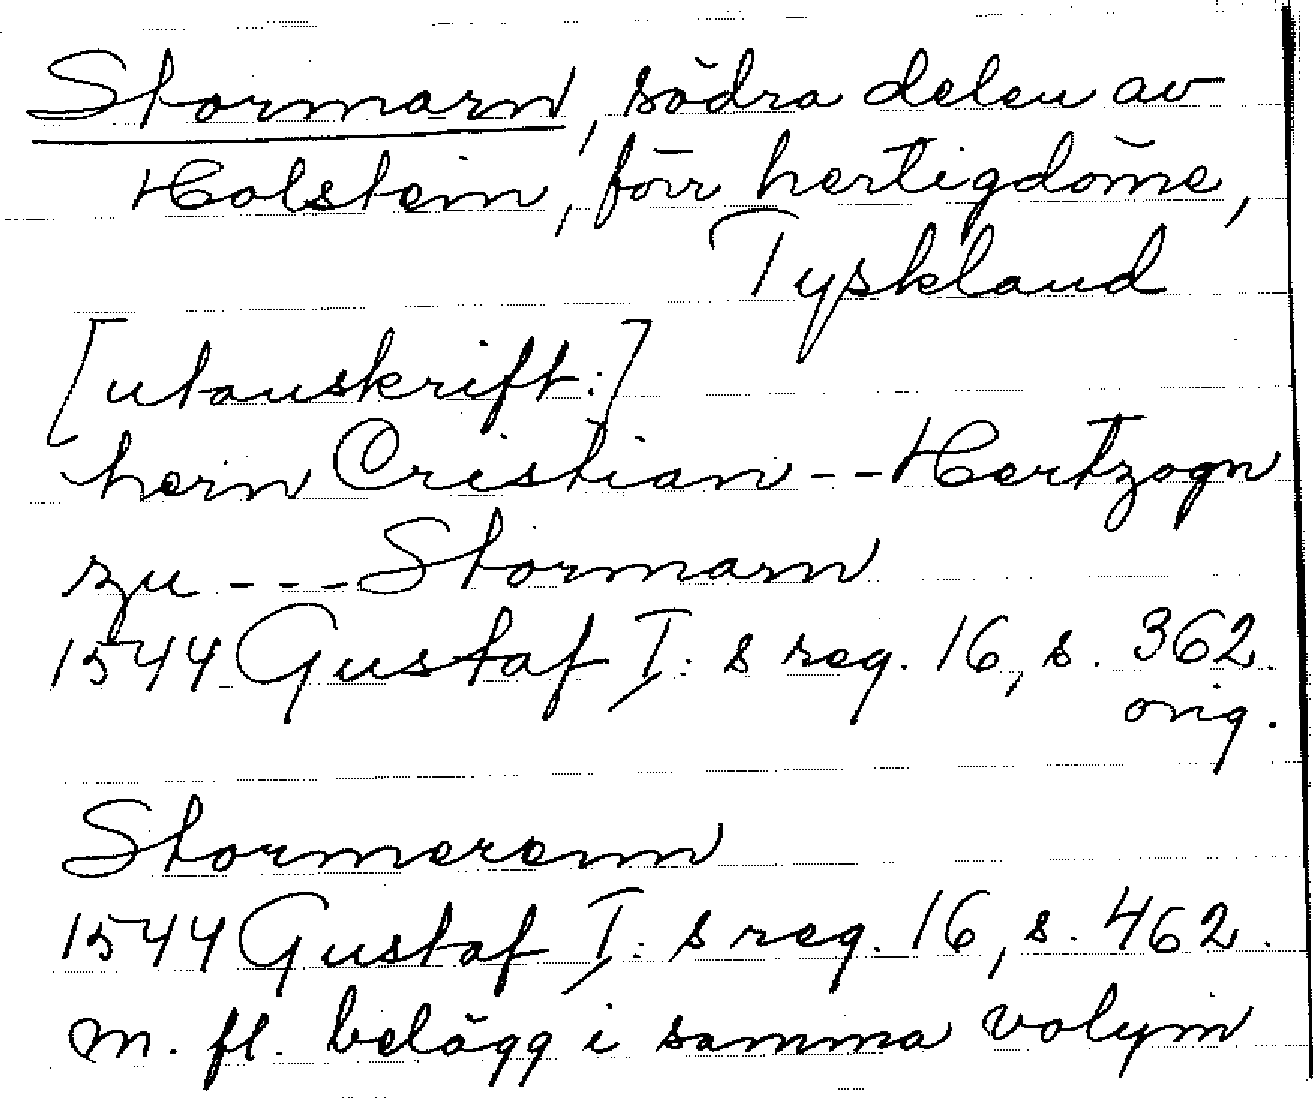 Stormarn, södra delen av
Holstein, förr hertigdöme,
Tyskland
[utanskrift:]
hern Cristian -- Hertzogn
zu --- Stormarn
1544 Gustaf I:s reg. 16, s. 362
orig.
Stormerenn
1544 Gustaf I:s reg. 16, s. 462.
m. fl. belägg i samma volym